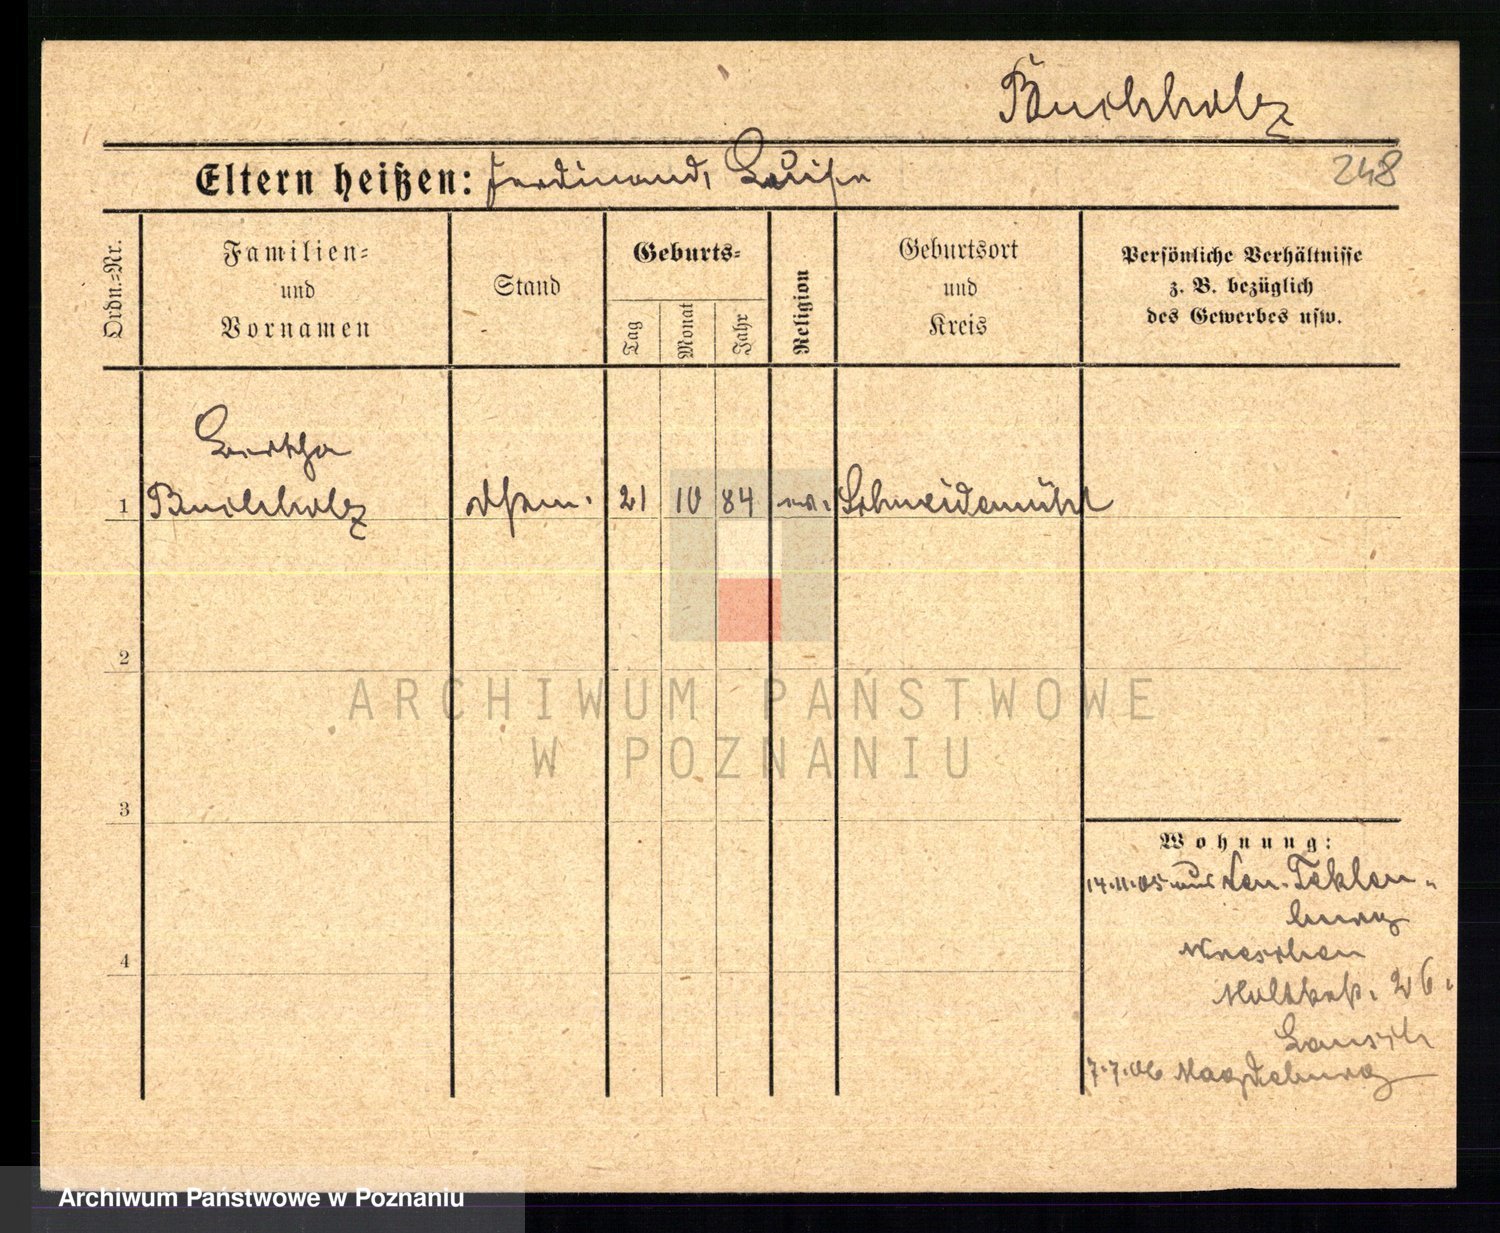 Buchholz
Eltern heißen: Ferdinand, Luise
248
Ordn.=Nr.
Familien=
und
Vornamen
Stand
Geburts=
Tag
Monat
Jahr
Religion
Geburtsort
und
Kreis
Persönliche Verhältnisse
z. B. bezüglich
des Gewerbes usw.
Bertha
1 Buchholz 21 10 84 ev. Schneidemühl
2
ARCHIWUM PAŃSTWOWE
W POZNANIU
3
Wohnung:
14.11.05 aus Teklen-
burg
Wreschen
Moltkestr. 26.
7.7.06 Magdeburg
4
Archiwum Państwowe w Poznaniu